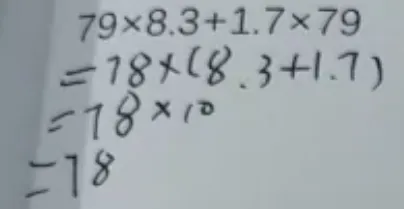 79×8.3+1.7×79
=78×(8.3+1.7)
=78×10
=78